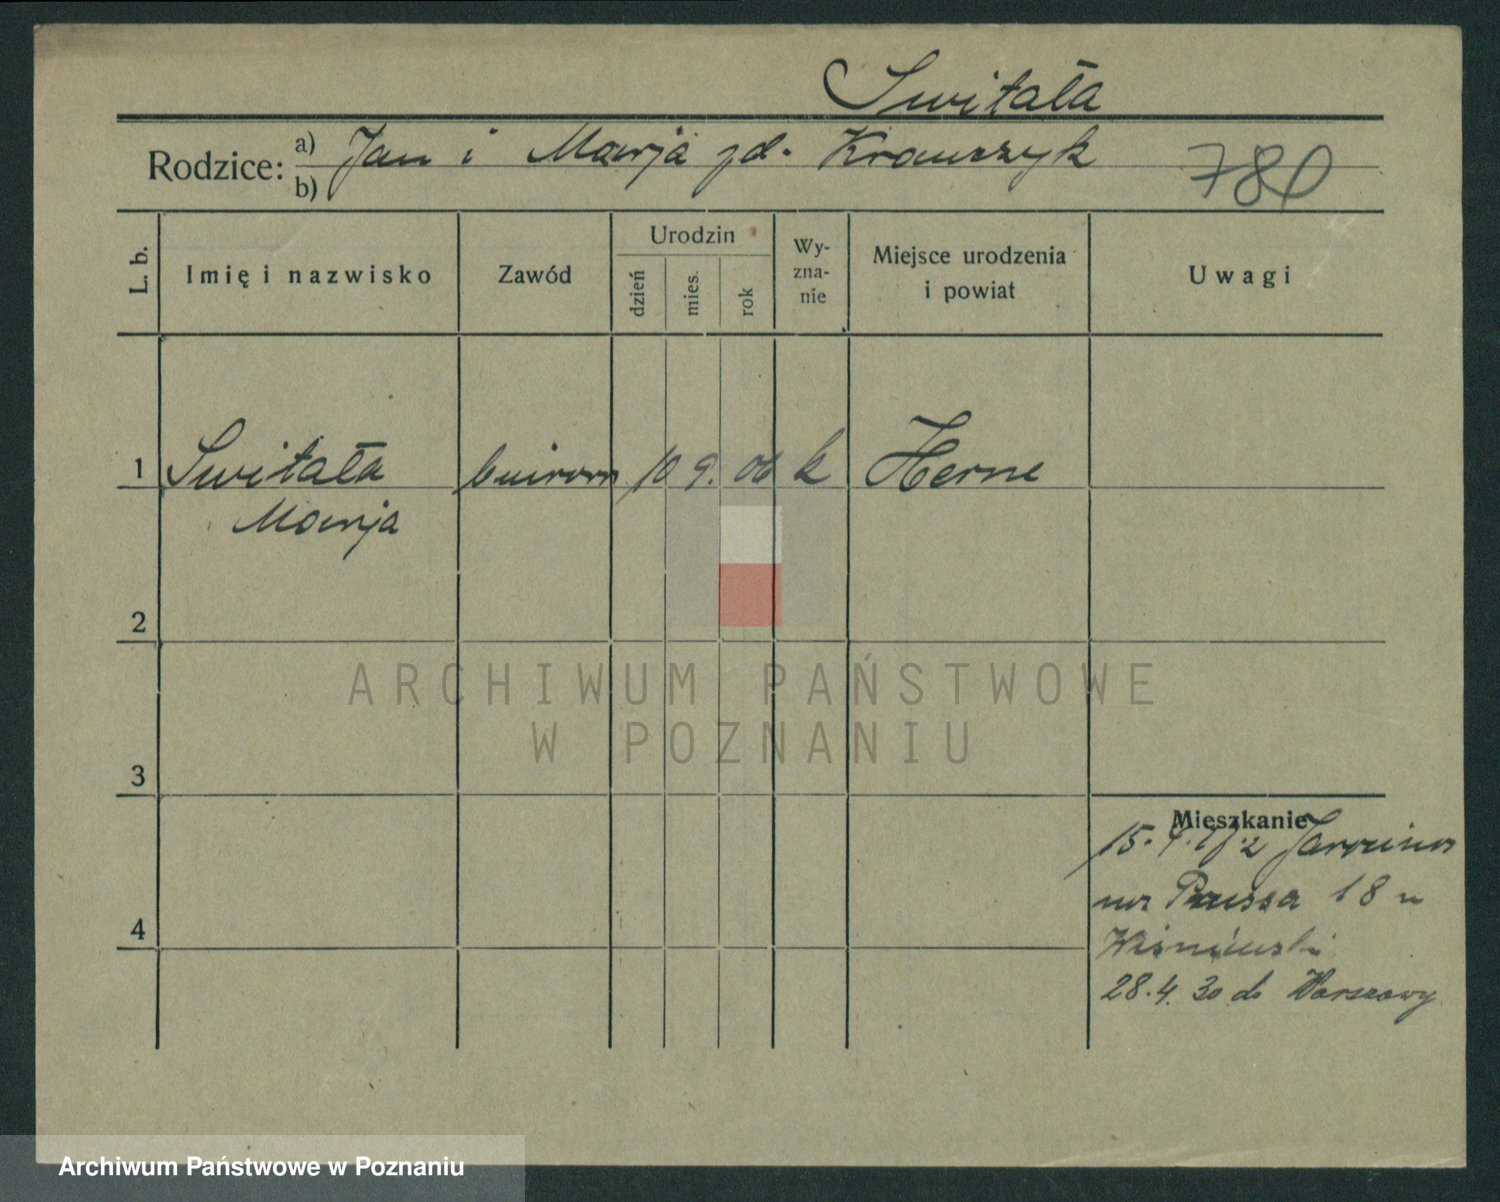 Switała
Rodzice: a) Jan i Marja zd. Krawczyk
b)
780
L. b.
Imię i nazwisko
Zawód
Urodzin
dzień
mies.
rok
Wy-
zna-
nie
Miejsce urodzenia
i powiat
Uwagi
1 Switała 10 9. 06 k Herne
Marja
2
ARCHIWUM PAŃSTWOWE
W POZNANIU
3
Mieszkanie
15. 4.
Prussa 18
4
Wiśniewski
28.4. 30 do Warszawy
Archiwum Państwowe w Poznaniu